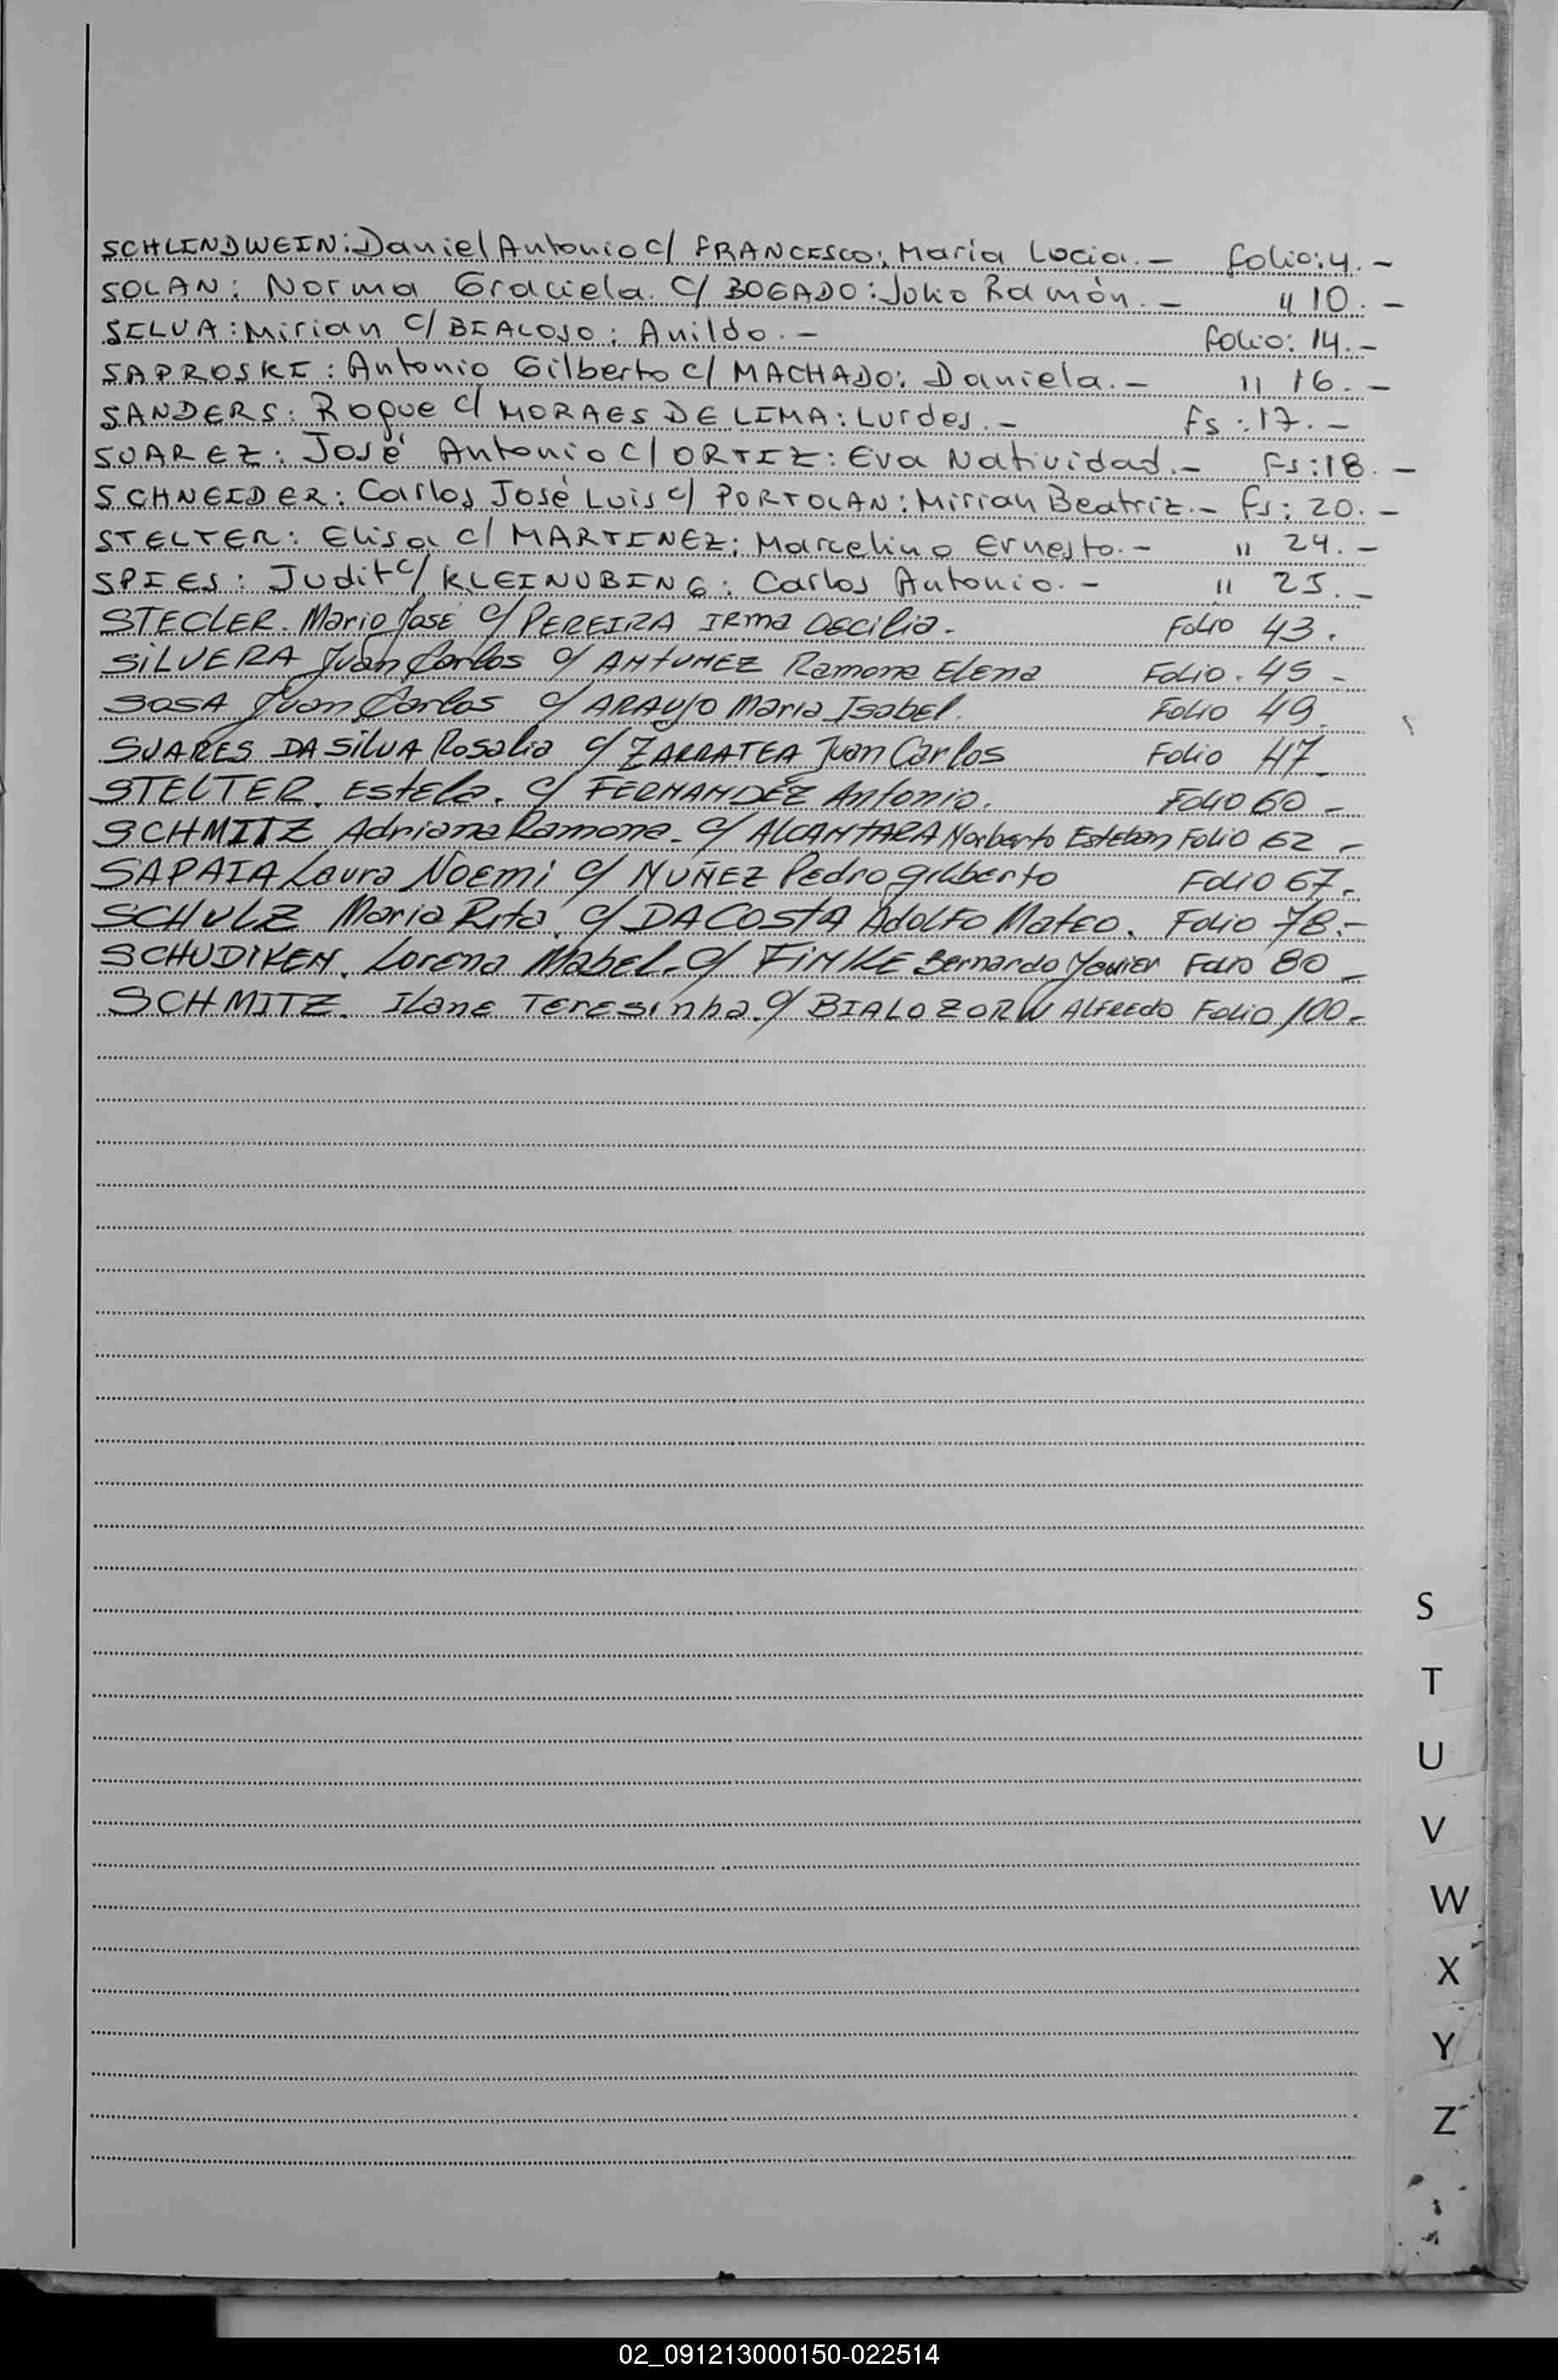 SCHLINDWEIN: Daniel Antonio c/ FRANCESCO: María Lucia.- folio: 4.-
SOLAN: Norma Graciela. C/ BOGADO: Julio Ramón.- " 10.-
SILVA: Mirian c/ BIALOSO: Anildo.- folio: 14.-
SAPROSKI: Antonio Gilberto c/ MACHADO: Daniela.- " 16.-
SANDERS: Roque c/ MORAES DE LIMA: Lurdes.- fs: 17.-
SUAREZ: José Antonio c/ ORTIZ: Eva Natividad.- Fs: 18.-
SCHNEIDER: Carlos José Luis c/ PORTOLAN: Mirian Beatriz.- fs: 20.-
STELTER: Elisa c/ MARTINEZ: Marcelino Ernesto.- " 24.-
SPIES: Judit c/ KLEINUBING: Carlos Antonio.- " 25.-
STECLER. Mario José c/ PEREIRA IRma Cecilia- Folio 43.
SILVERA Juan Carlos c/ ANTUNEZ Ramona Elena Folio. 45-
SOSA Juan Carlos c/ ARAUJO Maria Isabel. Folio 49.
SUARES DA SILVA Rosalia c/ ZARRATEA Juan Carlos Folio 47-
STELTER. Estela. c/ FERNANDEZ Antonio. Folio 60-
SCHMITZ Adriana Ramona- c/ ALCANTARA Norberto Esteban Folio 62-
SAPAIA Laura Noemi c/ NUÑEZ Pedro Gilberto Folio 67-
SCHULZ Maria Rita. c/ DA COSTA Adolfo Mateo. Folio 78.-
SCHUDIKEN. Lorena Mabel- c/ FINKE Bernardo Javier Folio 80-
SCHMITZ. Ilane Teresinha. c/ BIALOZORW ALFREDO Folio 100-
S
T
U
V
W
X
Y
Z
02_091213000150-022514